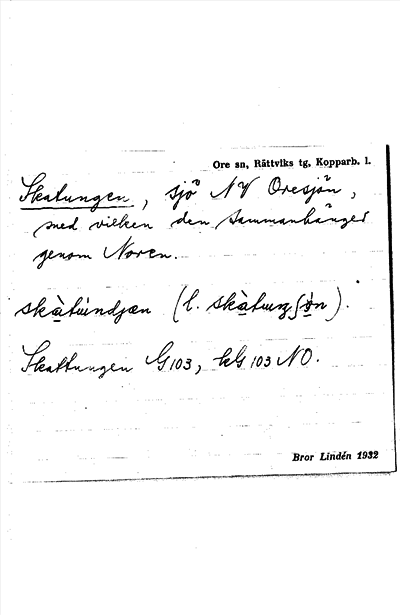 Ore sn, Rättviks tg, Kopparb. l.
Skatungen, sjö NV Oresjön,
med vilken den sammanhänger
genom Noren.
skàtúndjæn (l. skàtuŋʃön).
Skattungen G103, kG 103 NO.
Bror Lindén 1932